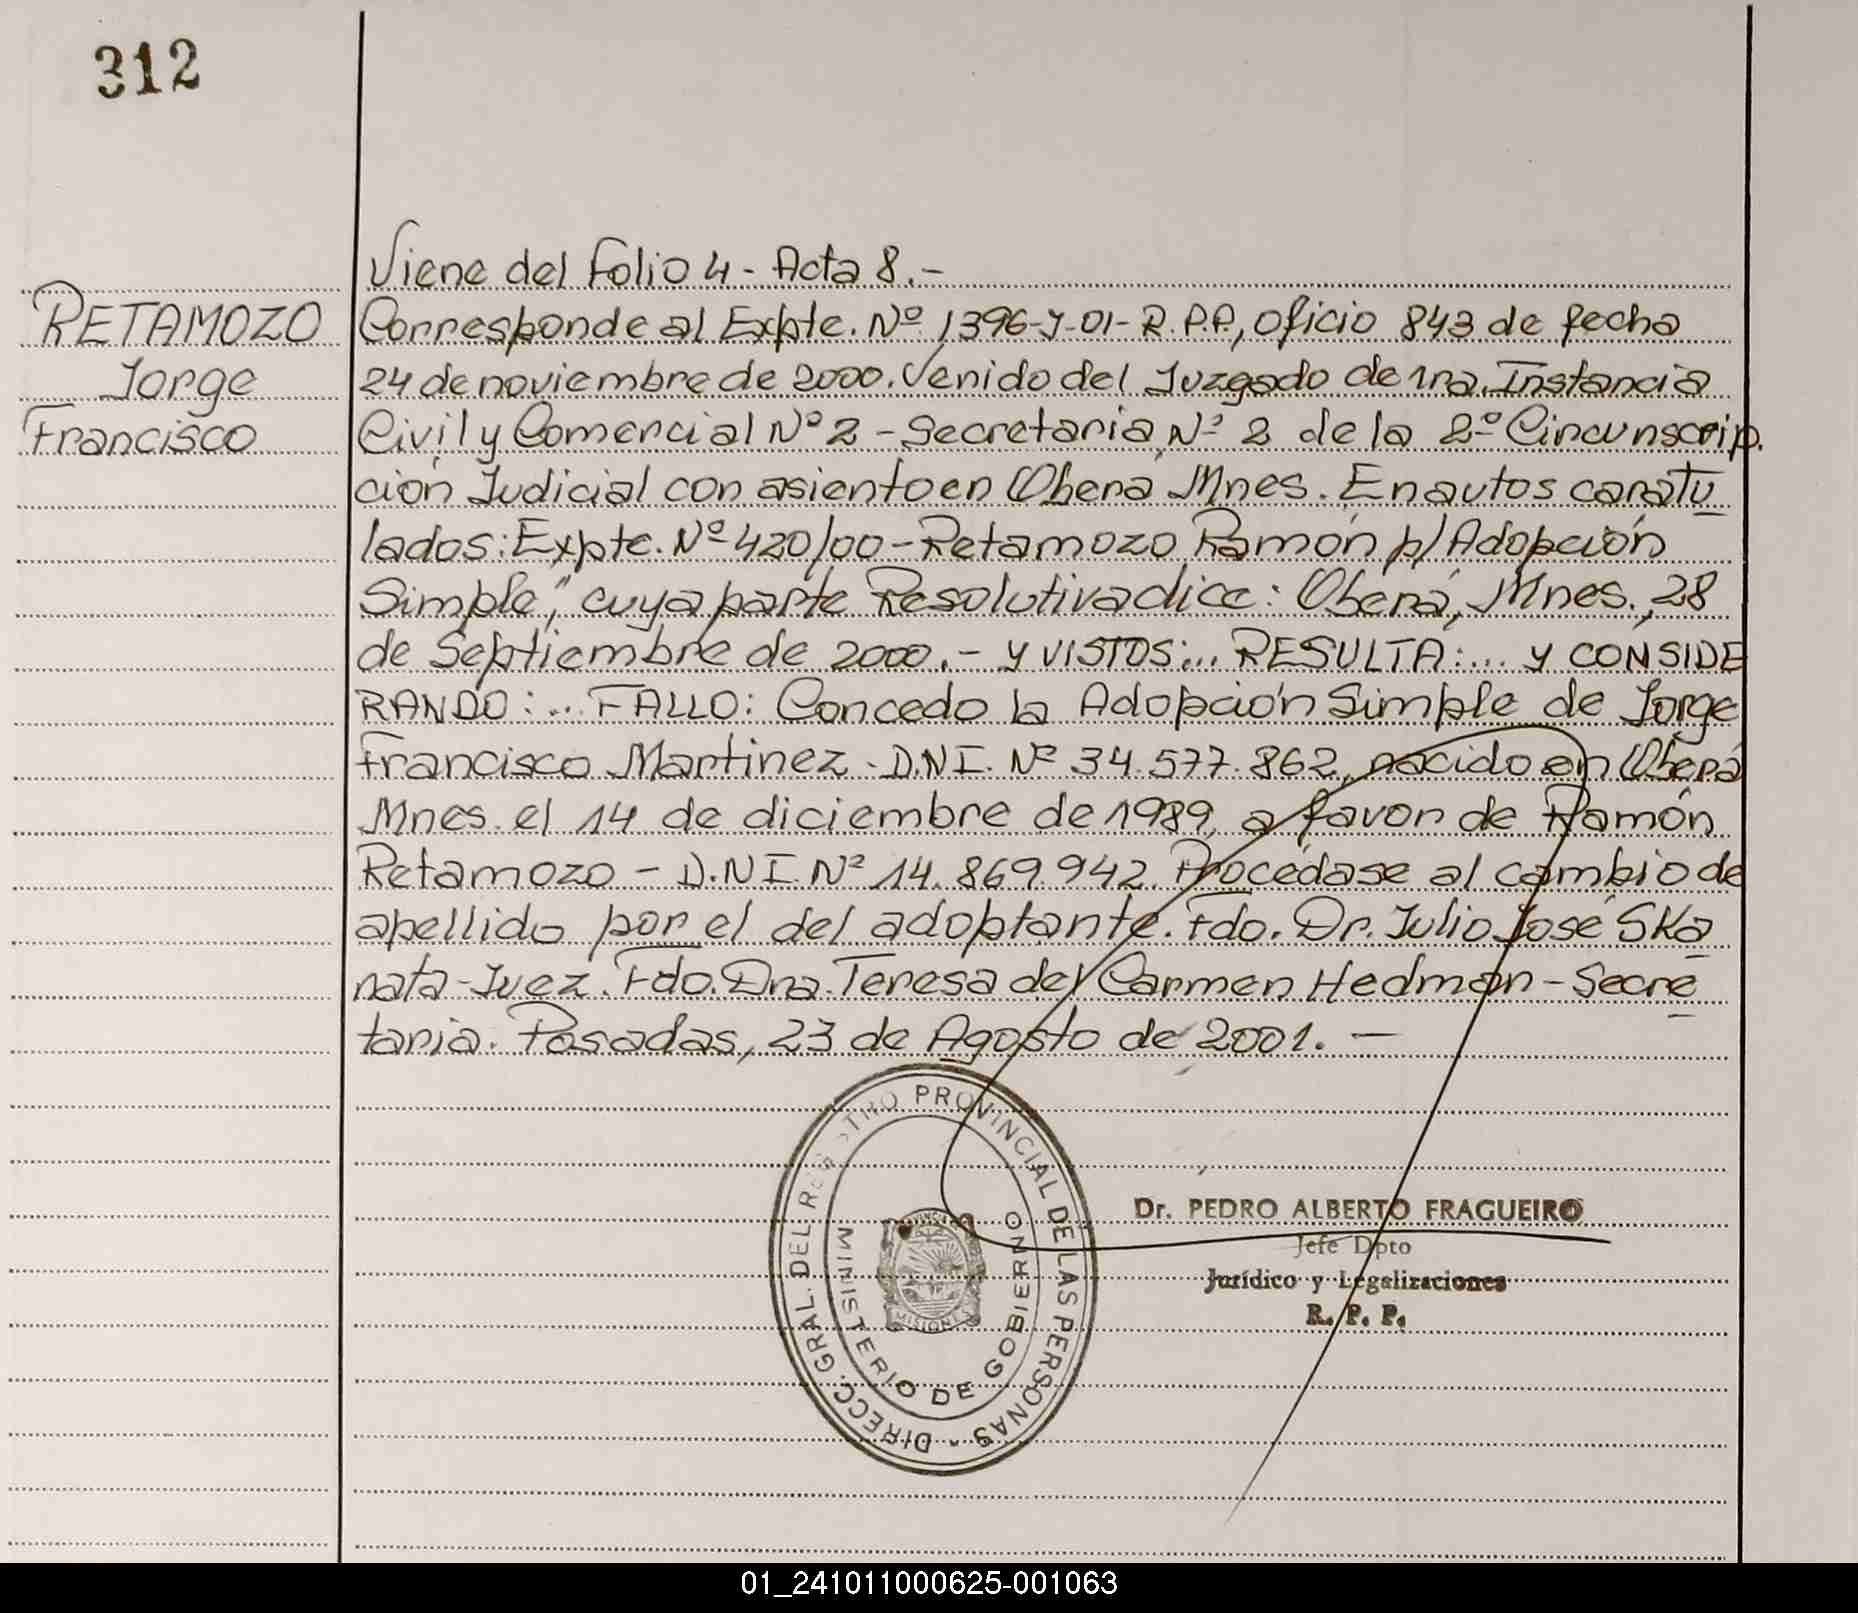 312
Viene del Folio 4 - Acta 8.-
RETAMOZO
Jorge
Francisco
Corresponde al Expte. Nº 1396-J-01-R.P.P., oficio 843 de fecha
24 de noviembre de 2000. Venido del Juzgado de 1ra. Instancia
Civil y Comercial Nº 2 - Secretaria Nº 2 de la 2º Circunscrip.
ción Judicial con asiento en Oberá Mnes. En autos caratu
lados: Expte. Nº 420/00 - Retamozo Ramón p/ Adopción
Simple", cuya parte Resolutiva dice: Oberá, Mnes., 28
de Septiembre de 2000.- y VISTOS:... RESULTA:... y CONSIDE
RANDO:... FALLO: Concedo la Adopción Simple de Jorge
Francisco Martinez - D.N.I. Nº 34.577.862, nacido en Oberá
Mnes. el 14 de diciembre de 1989, a favor de Ramón
Retamozo - D.N.I. Nº 14.869.942. Procédase al cambio de
apellido por el del adoptante. Fdo. Dr. Julio José Ska
nata - Juez. Fdo. Dra. Teresa del Carmen Hedman - Secre
taria. Posadas, 23 de Agosto de 2001. -
DIRECC. GRAL. DEL REGISTRO PROVINCIAL DE LAS PERSONAS -
MINISTERIO DE GOBIERNO
PROVINCIA
MISIONES
Dr. PEDRO ALBERTO FRAGUEIRO
Jefe Dpto
Jurídico y Legalizaciones
R. P. P.
01_241011000625-001063